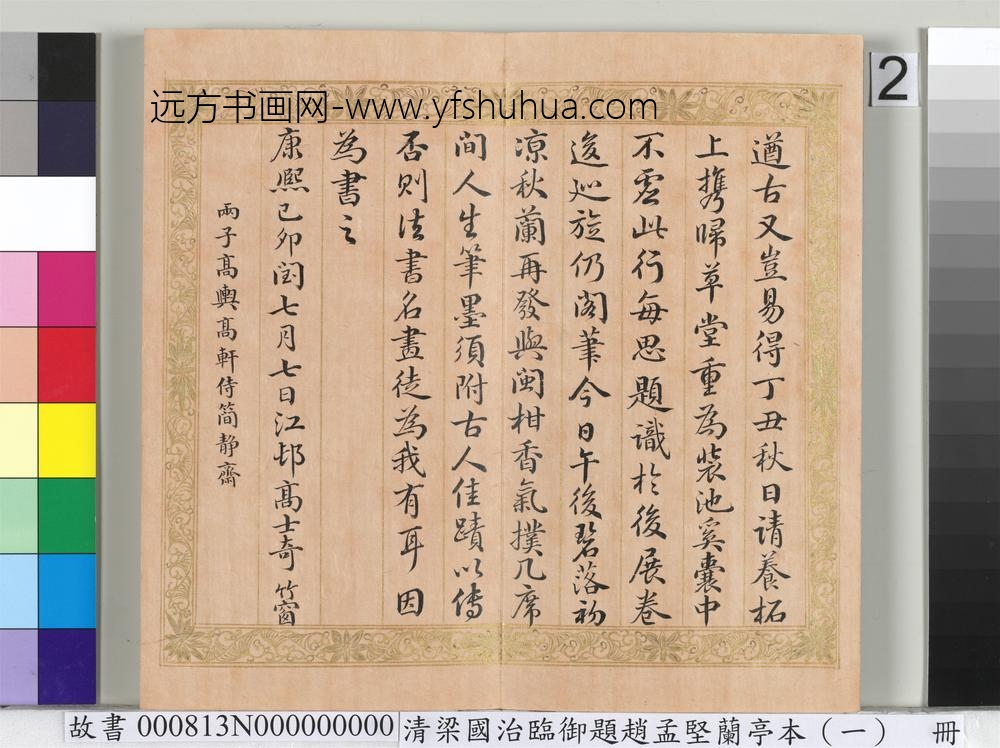 远方书画网-www.yfshuhua.com
2
遒古又豈易得丁丑秋日請養柘
上攜歸草堂重為裝池奚囊中
不虛此行每思題識於後展卷
逡巡旋仍閣筆今日午後碧落初
涼秋蘭再發與閩柑香氣撲几席
间人生筆墨須附古人佳蹟以傳
否則法書名畫徒為我有耳因
為書之
康熙己卯閏七月七日江邨高士奇竹窗
兩子高輿高軒侍简靜齋
故書 000813N000000000 清梁國治臨御題趙孟堅蘭亭本（一） 冊